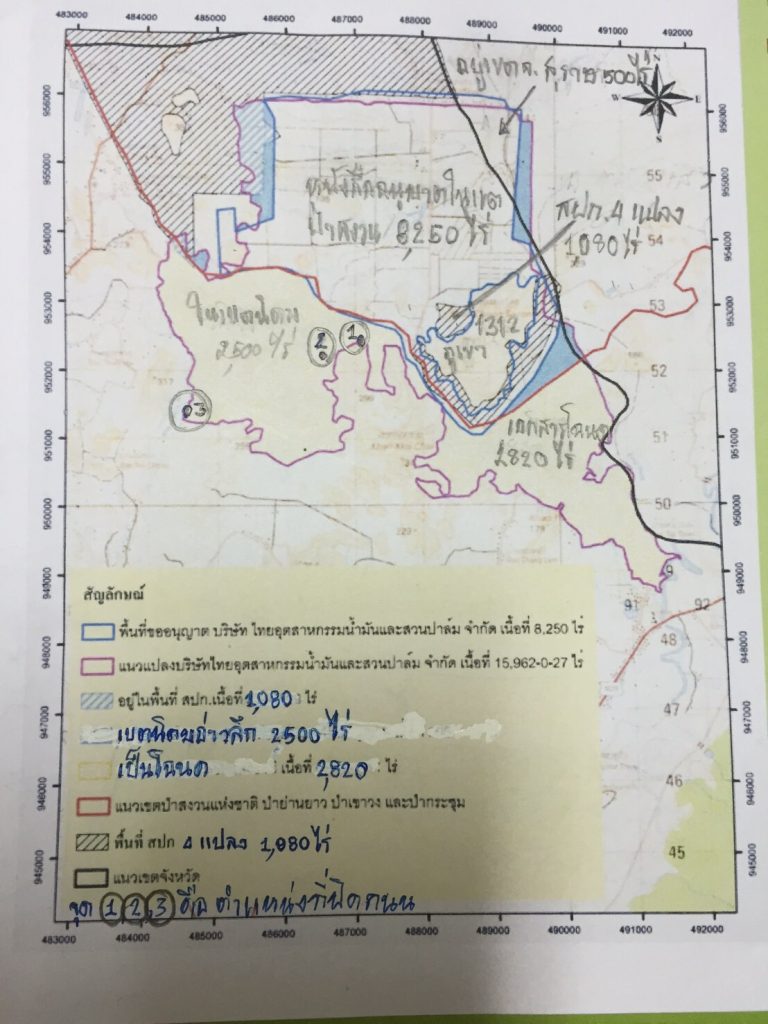 483000 484000 485000 486000 487000 488000 489000 490000 491000 492000
อยู่เขตจ. สุราษ 500ไร่
N
W E
S
956000 956000
955000 955000
954000 954000
953000 953000
952000 952000
951000 951000
950000 950000
949000 949000
948000 948000
947000 947000
946000 946000
945000 945000
55
หนังสืออนุญาตในเขต
ป่าสงวน 8,250 ไร่
สปก. 4 แปลง
1,080 ไร่
54
53
2,500 ไร่
2 1
1312
ภูเขา
52
3
เอกสารโฉนด
2,820 ไร่
51
50
9
91 92
48
47
46
45
สัญลักษณ์
พื้นที่ขออนุญาต บริษัท ไทยอุตสาหกรรมน้ำมันและสวนปาล์ม จำกัด เนื้อที่ 8,250 ไร่
แนวแปลงบริษัทไทยอุตสาหกรรมน้ำมันและสวนปาล์ม จำกัด เนื้อที่ 15,962-0-27 ไร่
อยู่ในพื้นที่ สปก.เนื้อที่ 1,080 ไร่
เขตนิคมอ่าวลึก 2500 ไร่
เป็นโฉนด เนื้อที่ 2,820 ไร่
แนวเขตป่าสงวนแห่งชาติ ป่าย่านยาว ป่าเขาวง และป่ากระซุม
พื้นที่ สปก 4 แปลง 1,080 ไร่
แนวเขตจังหวัด
จุด 1, 2, 3 คือ ตำแหน่งที่ปิดถนน
483000 484000 485000 486000 487000 488000 489000 490000 491000 492000